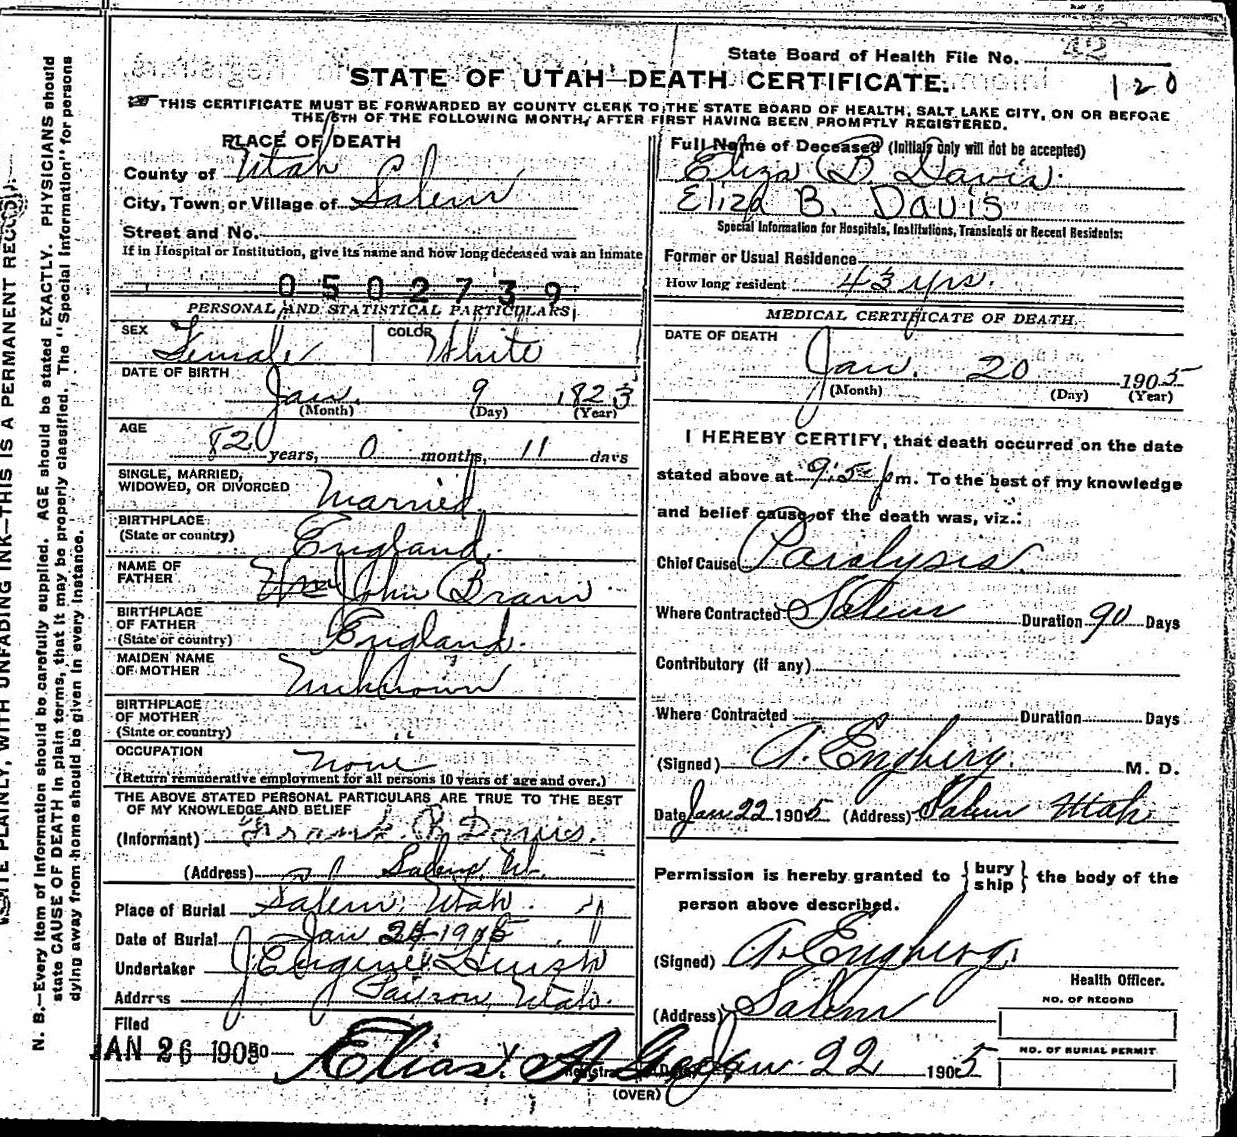 State Board of Health File No. 42
120
STATE OF UTAH—DEATH CERTIFICATE.
THIS CERTIFICATE MUST BE FORWARDED BY COUNTY CLERK TO THE STATE BOARD OF HEALTH, SALT LAKE CITY, ON OR BEFORE
THE 5TH OF THE FOLLOWING MONTH, AFTER FIRST HAVING BEEN PROMPTLY REGISTERED.
PLACE OF DEATH
County of Utah
City, Town or Village of Salem
Street and No.
If in Hospital or Institution, give its name and how long deceased was an inmate
0502739
PERSONAL AND STATISTICAL PARTICULARS
SEX Female COLOR White
DATE OF BIRTH
Jan. 9 1823
(Month) (Day) (Year)
AGE
82 years, 0 months, 11 days
SINGLE, MARRIED,
WIDOWED, OR DIVORCED Married
BIRTHPLACE
(State or country) England.
NAME OF
FATHER John Brain
BIRTHPLACE
OF FATHER
(State or country) England.
MAIDEN NAME
OF MOTHER Unknown
BIRTHPLACE
OF MOTHER
(State or country) "
OCCUPATION None
(Return remunerative employment for all persons 10 years of age and over.)
THE ABOVE STATED PERSONAL PARTICULARS ARE TRUE TO THE BEST
OF MY KNOWLEDGE AND BELIEF
(Informant) Frank Davies.
(Address) Salem, Ut.
Place of Burial Salem, Utah.
Date of Burial Jan 24 1905
Undertaker J Eugene
Address Payson, Utah.
Filed
JAN 26 1905
Elias A. Gee
Registrar
(OVER)
Full Name of Deceased (Initials only will not be accepted)
Eliza B Davis.
Eliza B. Davis
Special Information for Hospitals, Institutions, Transients or Recent Residents:
Former or Usual Residence
How long resident 43 yrs.
MEDICAL CERTIFICATE OF DEATH.
DATE OF DEATH
Jan. 20 1905
(Month) (Day) (Year)
I HEREBY CERTIFY, that death occurred on the date
stated above at pm. To the best of my knowledge
and belief cause of the death was, viz.:
Chief Cause Paralysis.
Where Contracted Salem Duration 90 Days
Contributory (if any)
Where Contracted Duration Days
(Signed) A. Engberg. M. D.
Date Jan 22 1905 (Address) Salem Utah
Permission is hereby granted to { bury ship } the body of the
person above described.
(Signed) A. Engberg.
Health Officer.
(Address) Salem
Jan 22 1905
NO. OF RECORD
NO. OF BURIAL PERMIT
WRITE PLAINLY, WITH UNFADING INK—THIS IS A PERMANENT RECORD.
N. B.—Every item of information should be carefully supplied. AGE should be stated EXACTLY. PHYSICIANS should
state CAUSE OF DEATH in plain terms, that it may be properly classified. The "Special Information" for persons
dying away from home should be given in every instance.